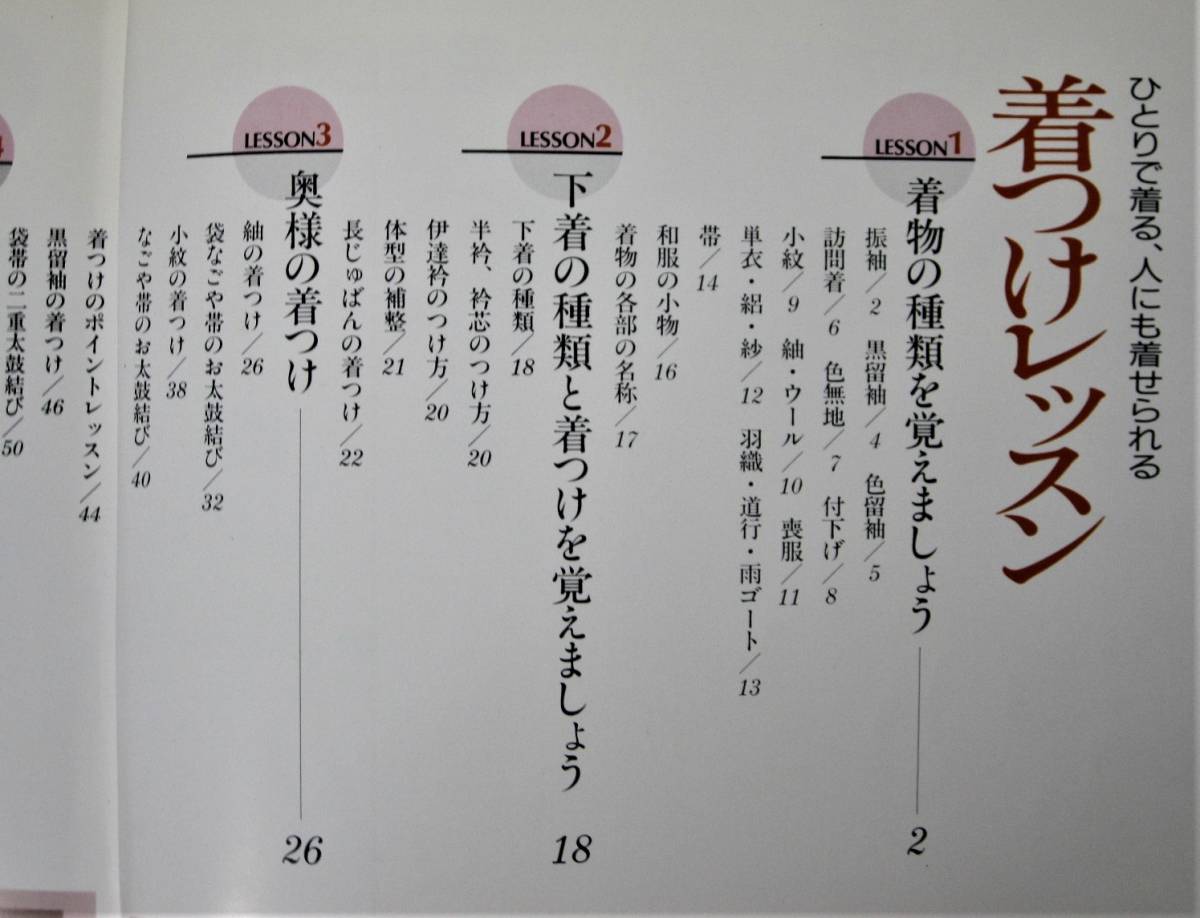 ひとりで着る、人にも着せられる
着つけレッスン
LESSON1
着物の種類を覚えましょう 2
振袖/2 黒留袖/4 色留袖/5
訪問着/6 色無地/7 付下げ/8
小紋/9 紬・ウール/10 喪服/11
単衣・絽・紗/12 羽織・道行・雨ゴート/13
帯/14
和服の小物/16
着物の各部の名称/17
LESSON2
下着の種類と着つけを覚えましょう 18
下着の種類/18
半衿、衿芯のつけ方/20
伊達衿のつけ方/20
体型の補整/21
長じゅばんの着つけ/22
LESSON3
奥様の着つけ 26
紬の着つけ/26
袋なごや帯のお太鼓結び/32
小紋の着つけ/38
なごや帯のお太鼓結び/40
着つけのポイントレッスン/44
黒留袖の着つけ/46
袋帯の二重太鼓結び/50
4